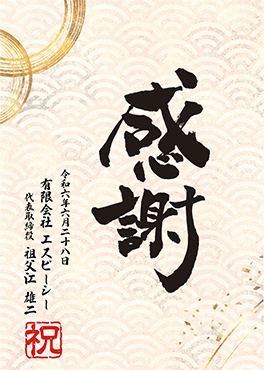 感謝
令和六年六月二十八日
有限会社 エスピーシー
代表取締役 祖父江 雄二
祝